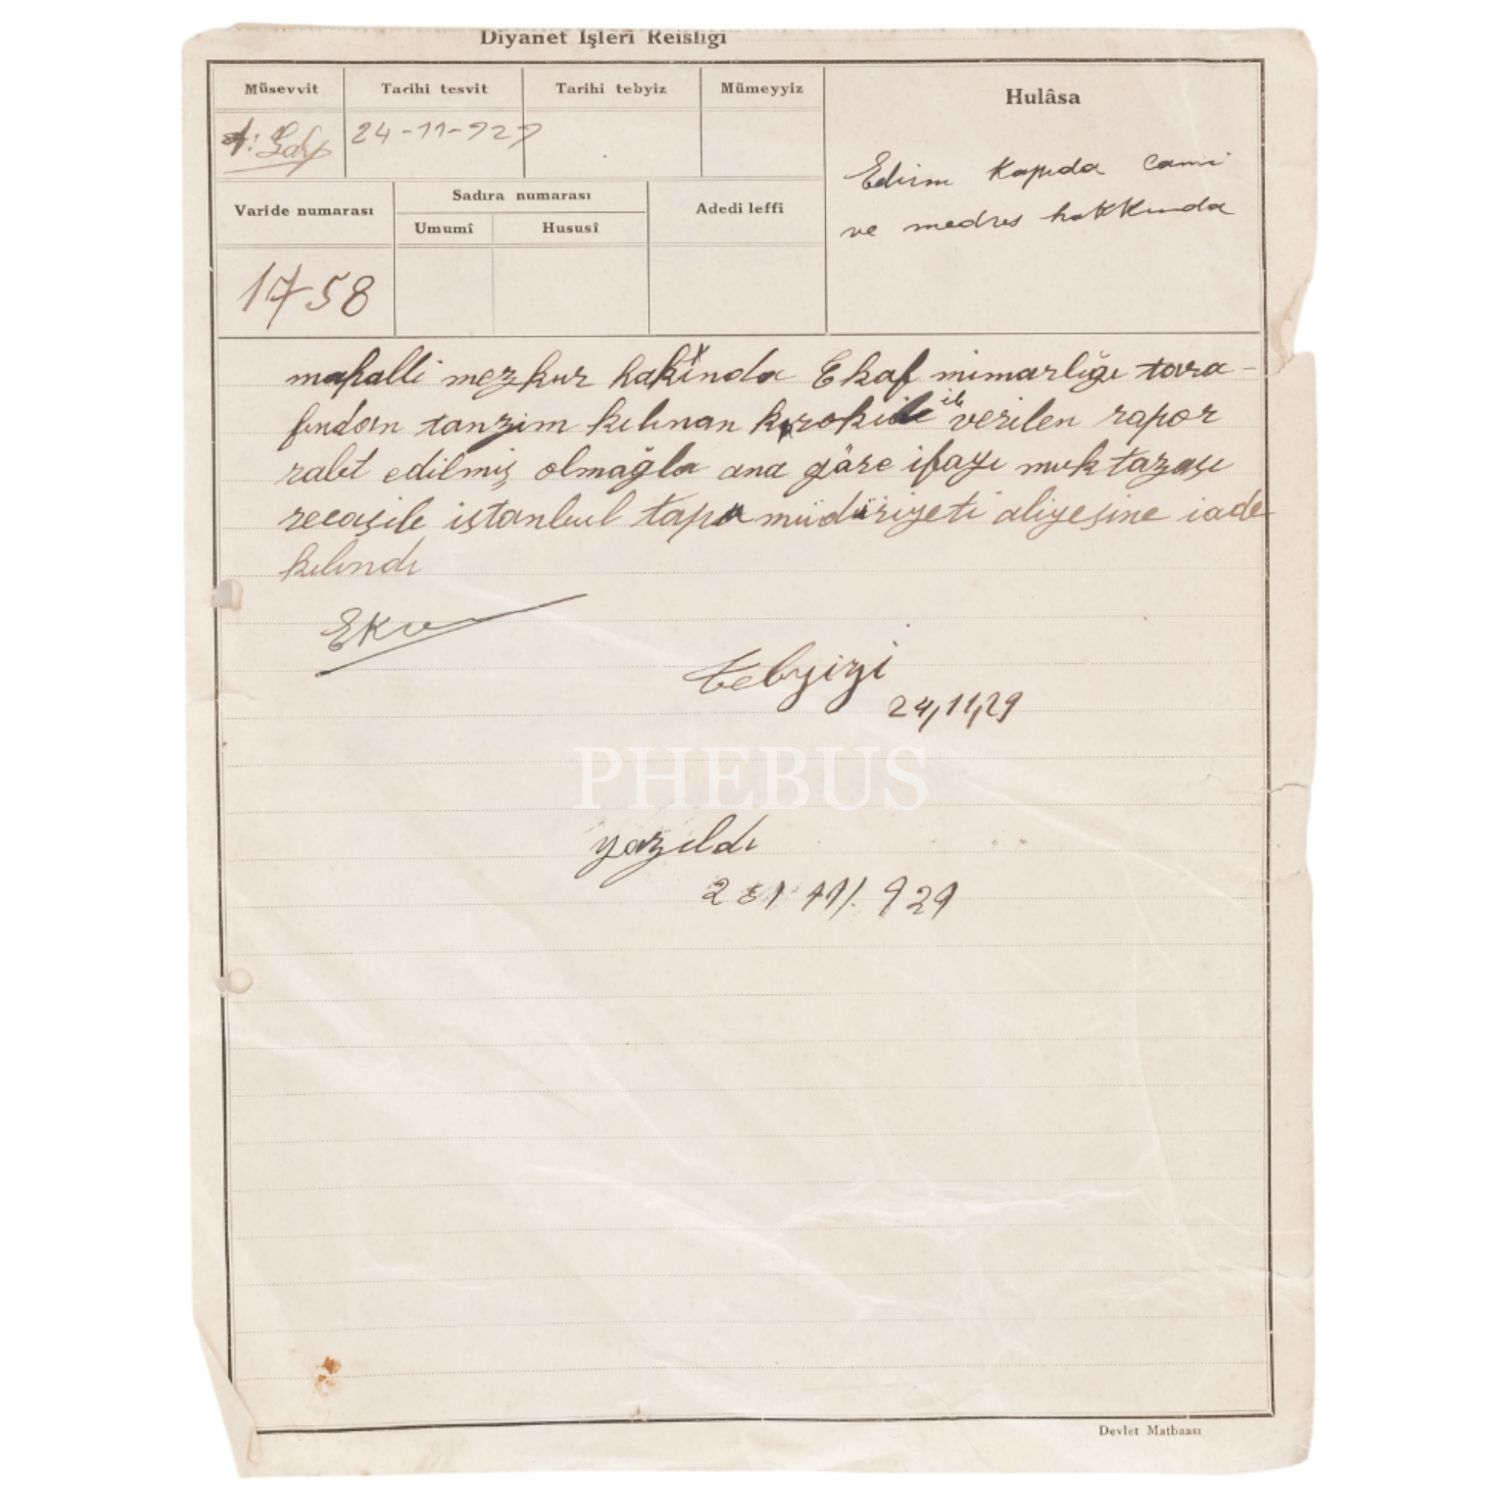 Diyanet İşleri Reisliği
Müsevvit
Tarihi tesvit
Tarihi tebyiz
Mümeyyiz
Hulâsa
24-11-929
Edirni Kapıda Cami
ve medres hakkında
Varide numarası
Sadıra numarası
Umumî
Hususî
Adedi leffi
1758
mahalli mezkur hakkinda Ekaf mimarlığı tara-
fından tanzim kılınan kırokiile ile verilen rapor
rabt edilmiş olmağla ana göre ifayı muktazası
recasile istanbul tapu müdüriyeti aliyesine iade
kılındı
tebyizi
24,11,29
PHEBUS
yazıldı
11/. 929
Devlet Matbaası